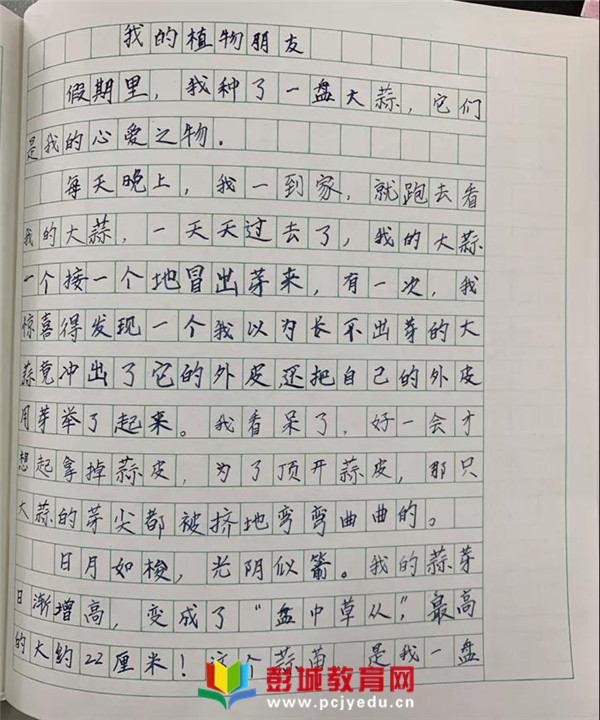 我的植物朋友
假期里，我种了一盘大蒜，它们
是我的心爱之物．
每天晚上，我一到家，就跑去看
我的大蒜，一天天过去了，我的大蒜
一个接一个地冒出芽来，有一次，我
惊喜得发现一个我以为长不出芽的大
蒜竟冲出了它的外皮还把自己的外皮
用芽举了起来。我看呆了，好一会才
想起拿掉蒜皮，为了顶开蒜皮，那只
大蒜的芽尖都被挤地弯弯曲曲的。
日月如梭，光阴似箭。我的蒜芽
日渐增高，变成了“盘中草从”，最高
的大约22厘米！这个蒜苗，是我一盘
彭城教育网
www.pcjyedu.cn